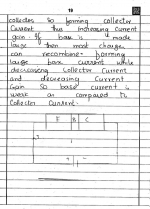 19
collector so forming collector
Current thus increasing current
gain. If base is made
large then most charge
can recombine forming
large base current while
decreasing Collector Current
and decreasing Current
Gain so base current is
weak as compared to
Collector Current.
E B C